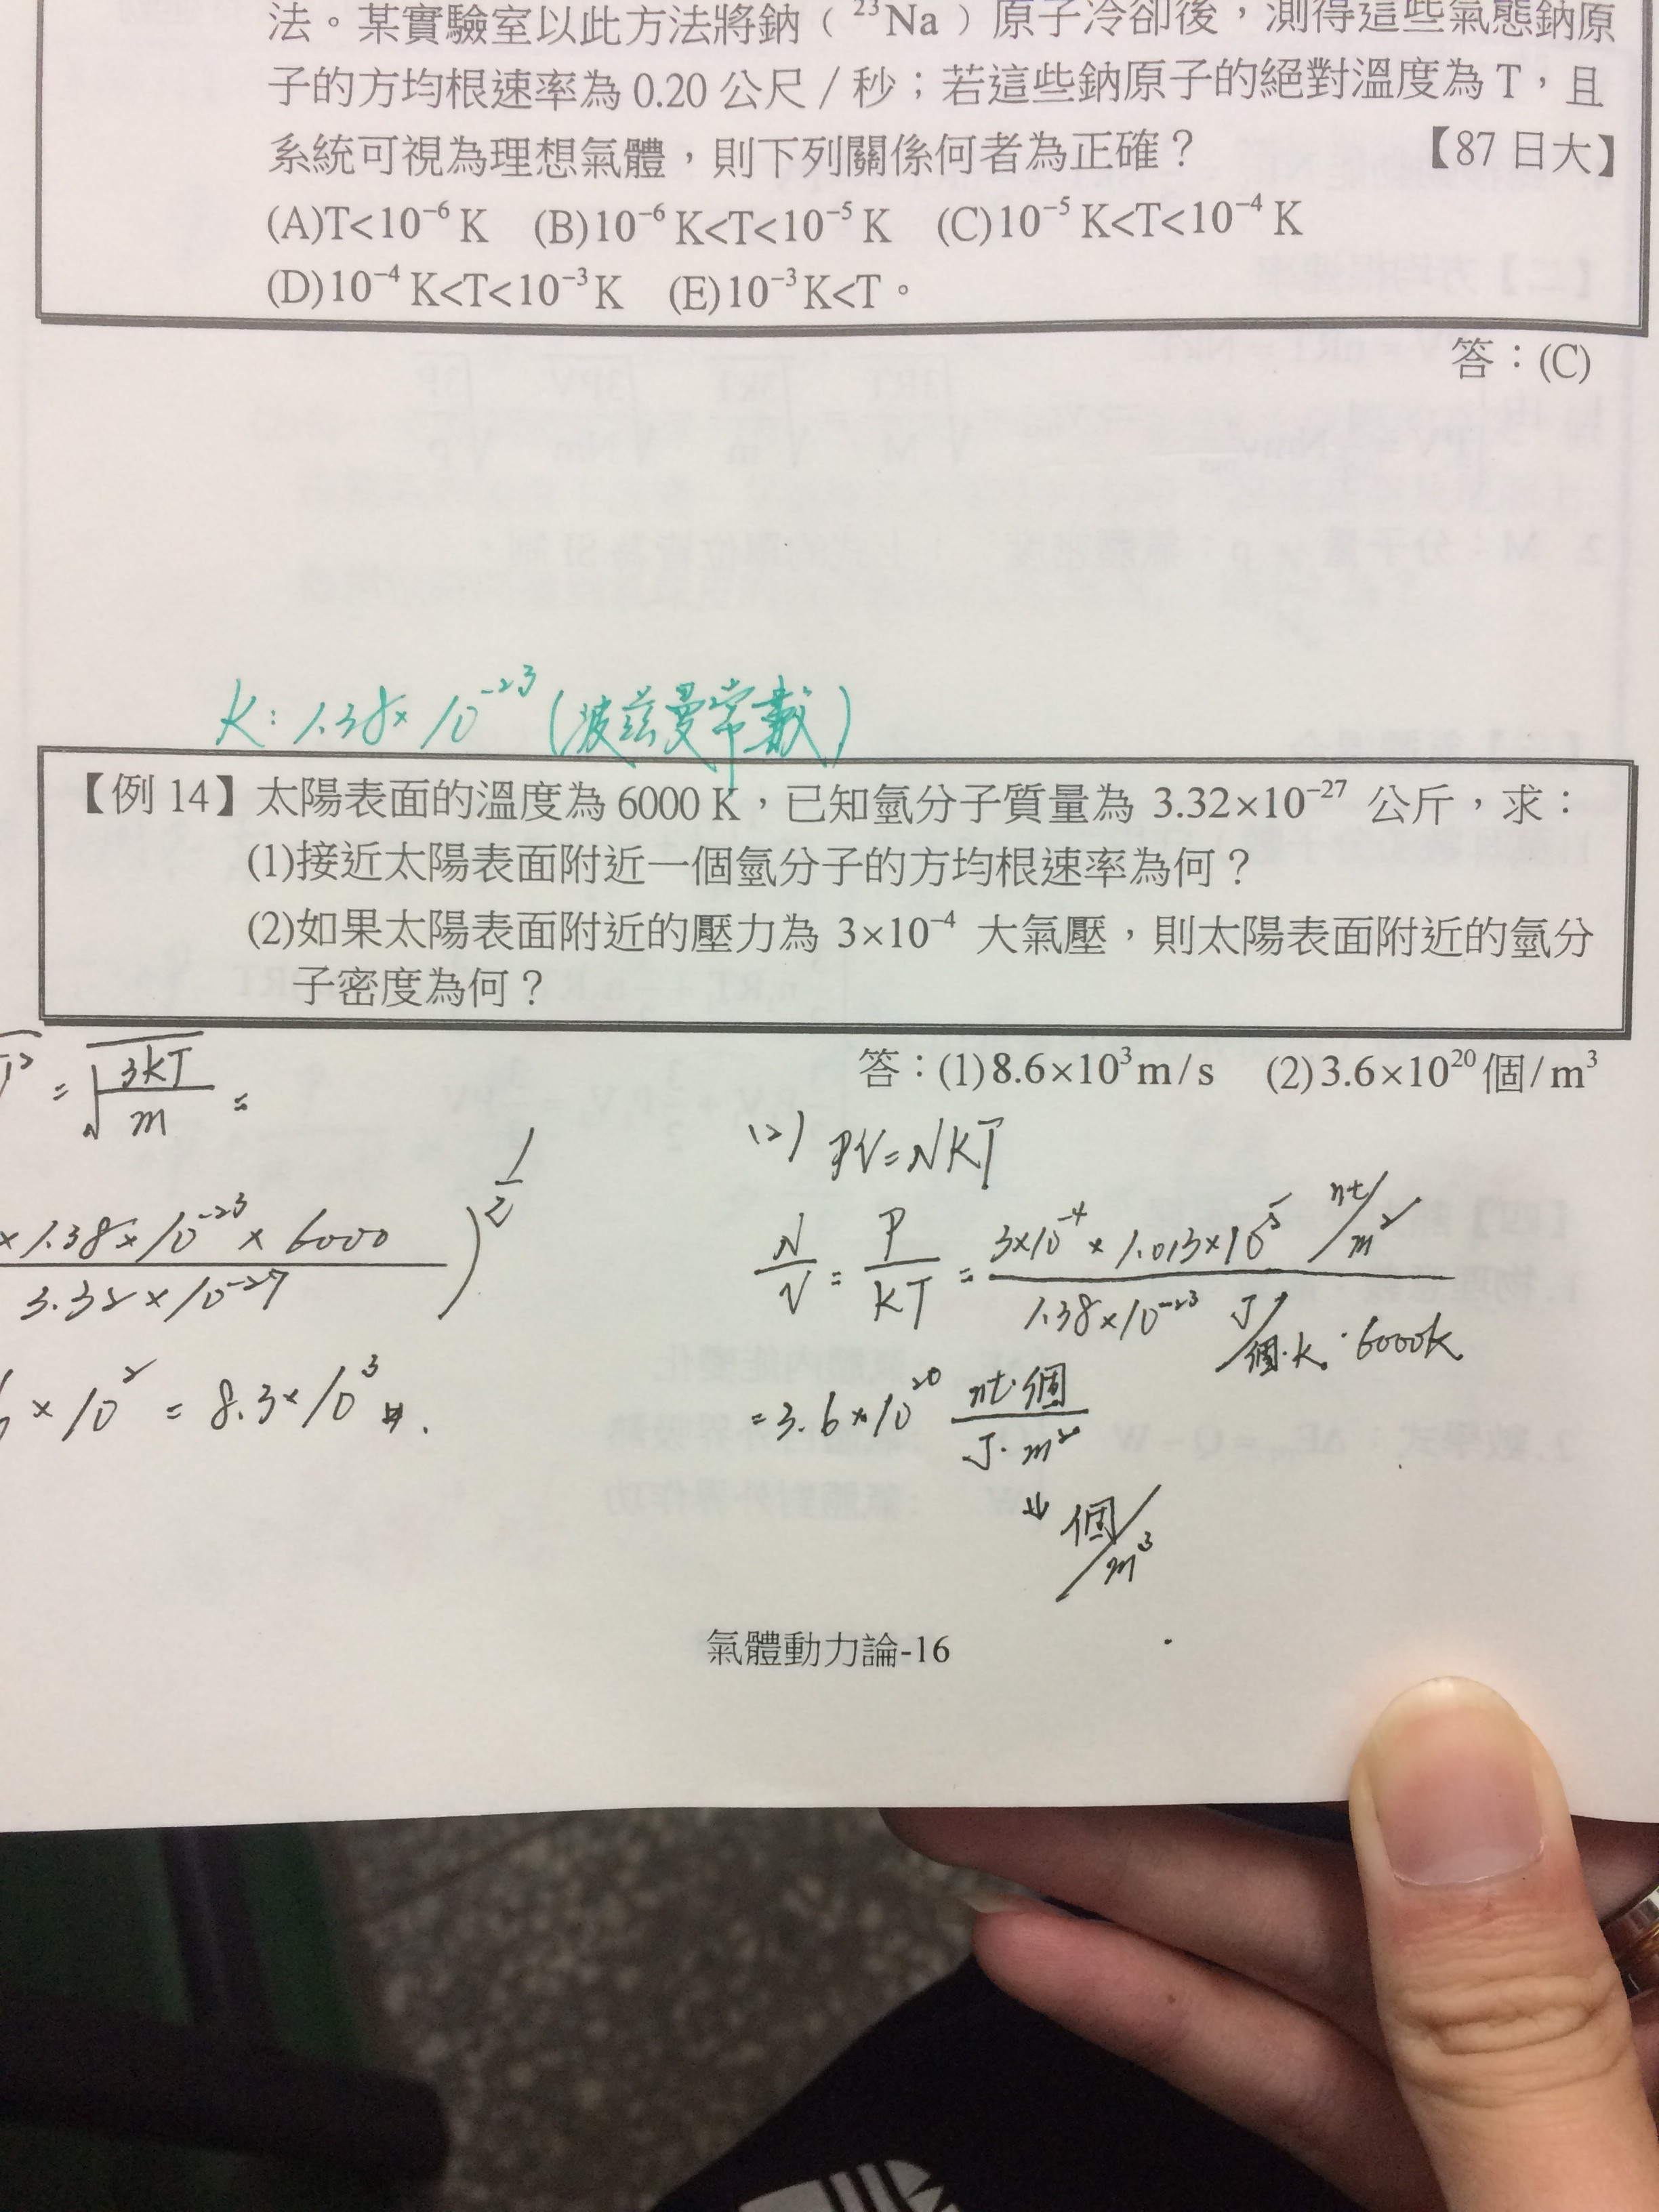 法。某實驗室以此方法將鈉（²³Na）原子冷卻後，測得這些氣態鈉原
子的方均根速率為 0.20 公尺／秒；若這些鈉原子的絕對溫度為 T，且
系統可視為理想氣體，則下列關係何者為正確？ 【87 日大】
(A)T<10⁻⁶ K (B)10⁻⁶ K<T<10⁻⁵ K (C)10⁻⁵ K<T<10⁻⁴ K
(D)10⁻⁴ K<T<10⁻³ K (E)10⁻³ K<T。
答：(C)
K: 1.38×10⁻²³ (波茲曼常數)
【例 14】太陽表面的溫度為 6000 K，已知氫分子質量為 3.32×10⁻²⁷ 公斤，求：
(1)接近太陽表面附近一個氫分子的方均根速率為何？
(2)如果太陽表面附近的壓力為 3×10⁻⁴ 大氣壓，則太陽表面附近的氫分
子密度為何？
答：(1)8.6×10³m/s (2)3.6×10²⁰個/m³
= √(3kT/m) =
×1.38×10⁻²³×6000 / 3.32×10⁻²⁷ )^(1/2)
×10² = 8.3×10³ #.
(2) PV=NKT
N/V = P/KT = 3×10⁻⁴×1.013×10⁵ nt/m² / 1.38×10⁻²³ J/個·K · 6000K
=3.6×10²⁰ nt·個/J·m²
⇓ 個/m³
氣體動力論-16